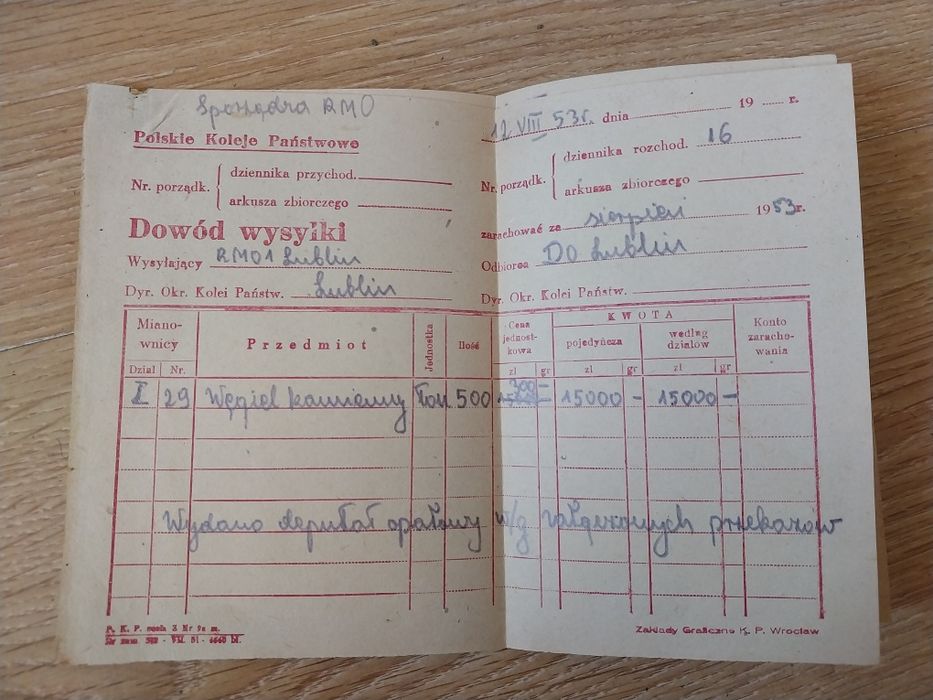 Sporządza RMO
Polskie Koleje Państwowe
Nr. porządk.
dziennika przychod.
arkusza zbiorczego
Dowód wysyłki
Wysyłający RMO1 Lublin
Dyr. Okr. Kolei Państw. Lublin
12 VIII 53r. dnia 19 r.
Nr. porządk.
dziennika rozchod. 16
arkusza zbiorczego
zarachować za sierpień 1953r.
Odbiorca DO Lublin
Dyr. Okr. Kolei Państw.
Mianownicy Przedmiot Jednostka Ilość Cena jednostkowa KWOTA Konto zarachowania
pojedyńcza według działów
Dział Nr. zł gr zł gr zł gr
I 29 Węgiel kamienny ton 500 300 — 15000 — 15000 —
Wydano deputat opałowy w/g załączonych przekazów
P. K. P. 3 Nr
Zakłady Graficzne K. P. Wrocław